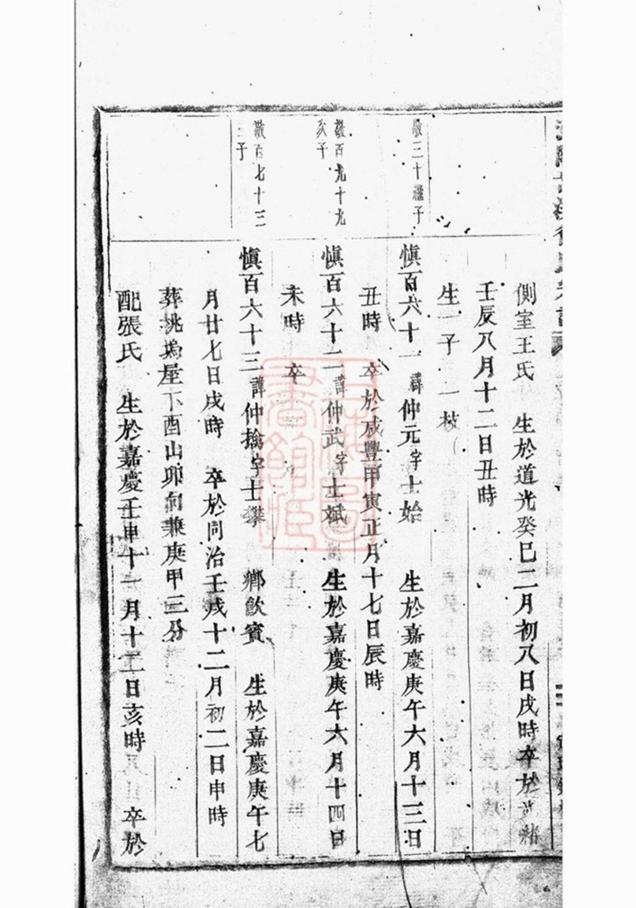 側室王氏　生於道光癸巳二月初八日戌時卒於光緒
壬辰八月十二日丑時
生一子　一枝
敬三十繼子
慎百六十一諱仲元字士始　生於嘉慶庚午六月十三日
丑時　卒於咸豐甲寅正月十七日辰時
敬百九十九
次子
慎百六十二諱仲武字士斌　生於嘉慶庚午六月十四日
未時　卒
敬百七十三
子
慎百六十三諱仲擒字士攀　鄉飲賓　生於嘉慶庚午七
月廿七日戌時　卒於同治壬戌十二月初二日申時
葬桃塢屋下酉山卯向兼庚甲三分
配張氏　生於嘉慶壬申十一月十二日亥時　卒於
上海圖書館藏